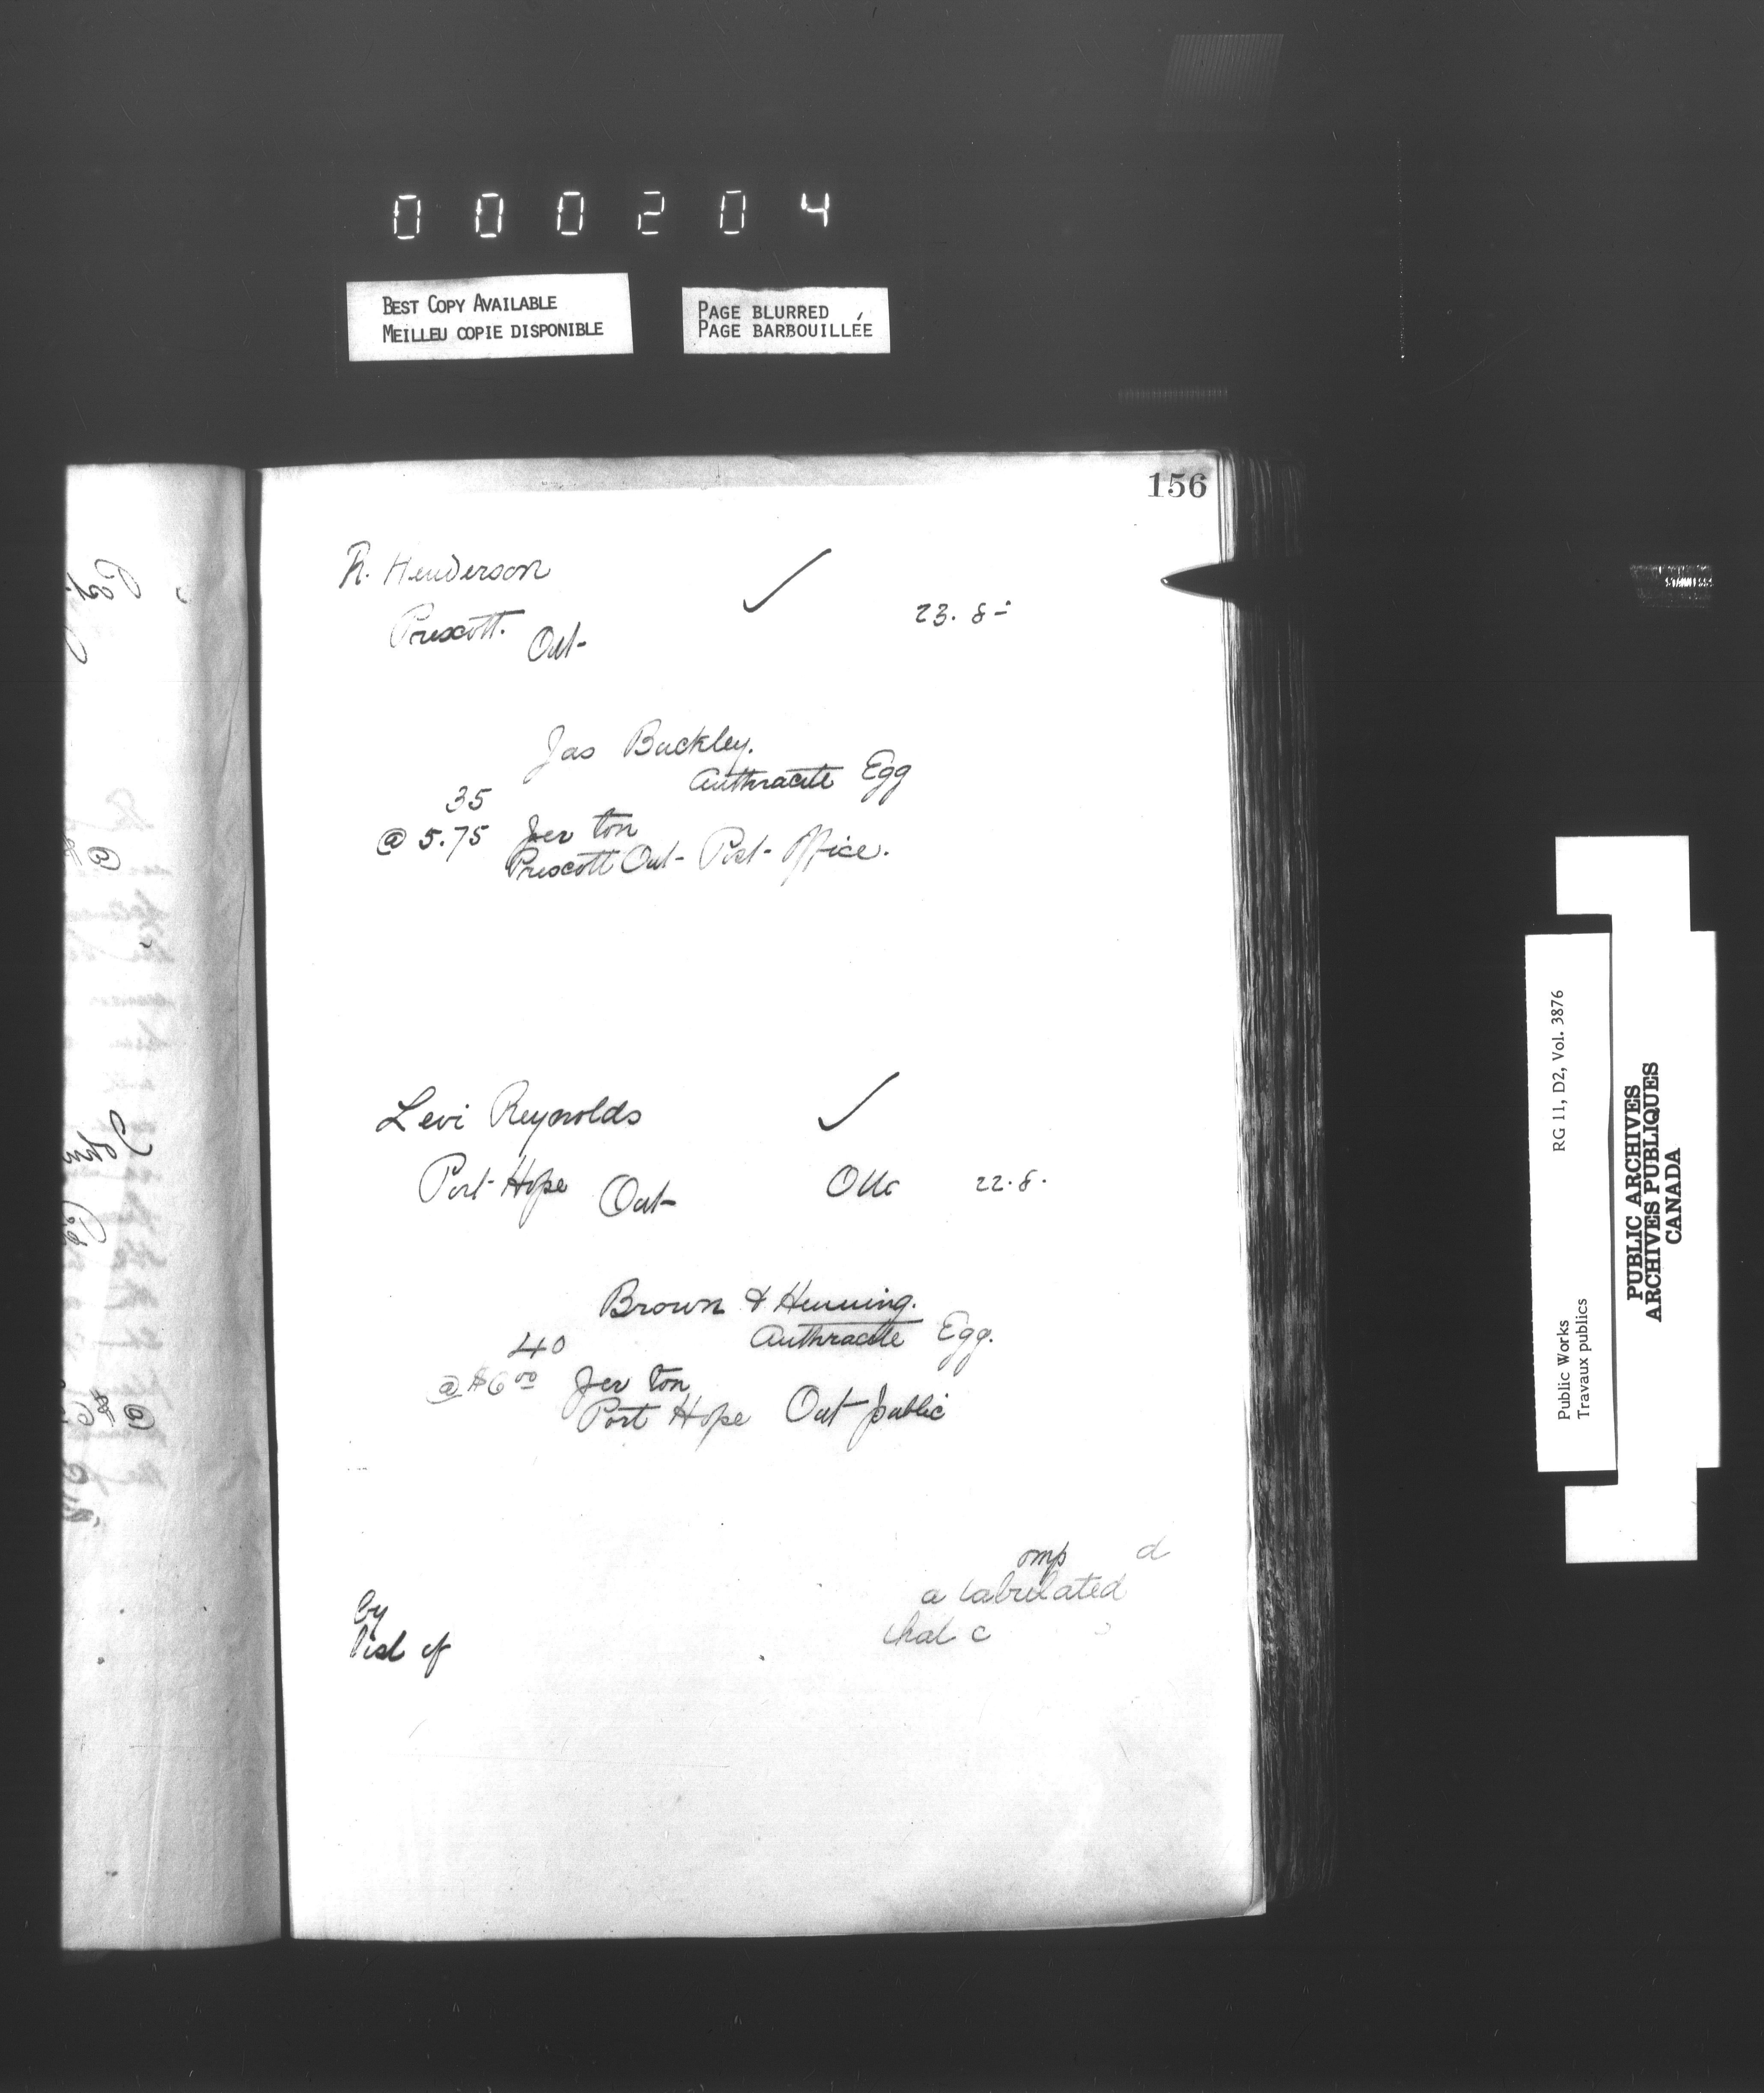 000204
BEST COPY AVAILABLE
MEILLEU COPIE DISPONIBLE
PAGE BLURRED
PAGE BARBOUILLÉE
156
R. Henderson
Prescott. Ont- 23. 8-
Jas Buckley.
Anthracite Egg
35
@ 5.75 per ton
Prescott Ont- Post- Office.
Levi Reynolds
Port-Hope Ont- 22.8.
Brown & Henning.
40 Anthracite Egg.
@ $6 00 per ton
Port Hope Ont public
omp d
a tabulated
by that c
list of
RG 11, D2, Vol. 3876
Public Works
Travaux publics
PUBLIC ARCHIVES
ARCHIVES PUBLIQUES
CANADA